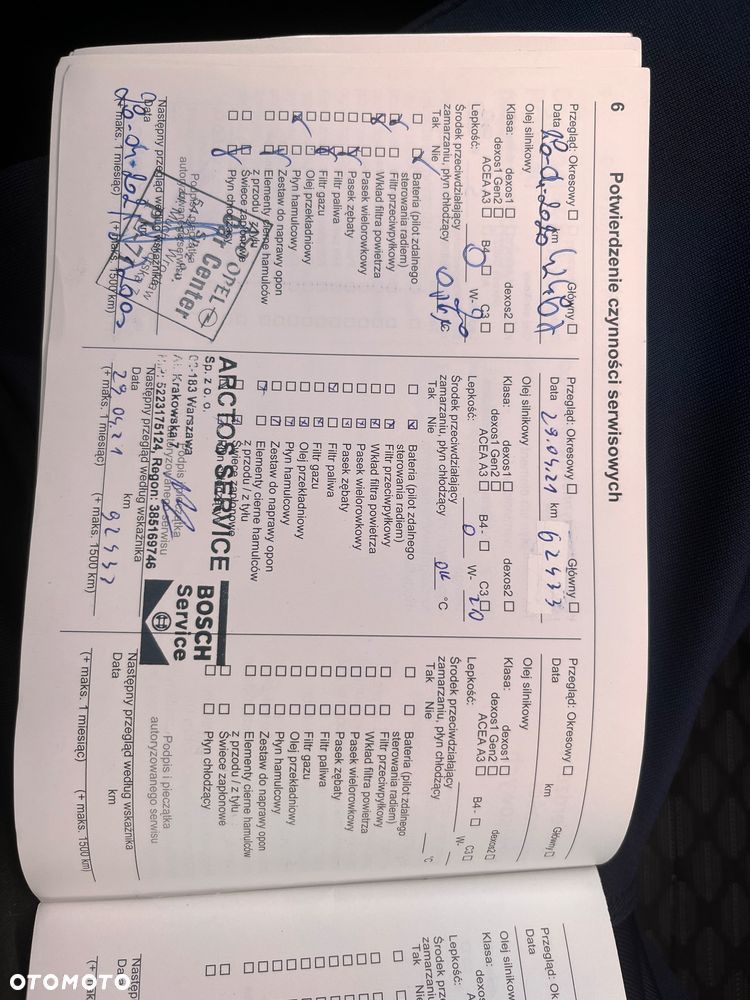 6
Potwierdzenie czynności serwisowych
Przegląd: Okresowy
Główny
Data
km
Olej silnikowy
Klasa:
dexos1
dexos2
dexos1 Gen2
ACEA A3
B4
C3
Lepkość:
0
W-
Środek przeciwdziałający
zamarzaniu, płyn chłodzący
°C
Tak Nie
Bateria (pilot zdalnego
sterowania radiem)
Filtr przeciwpyłkowy
Wkład filtra powietrza
Pasek wielorowkowy
Pasek zębaty
Filtr paliwa
Filtr gazu
Olej przekładniowy
Płyn hamulcowy
Zestaw do naprawy opon
Elementy cierne hamulców
z przodu / z tyłu
Świece zapłonowe
Płyn chłodzący
OPEL
Car Center
Podpis i pieczątka
autoryzowanego serwisu
Następny przegląd według wskaźnika
Data
(+ maks. 1 miesiąc)
(+ maks. 1500 km)
Przegląd: Okresowy
Główny
Data 29.04.21 km 62433
Olej silnikowy
Klasa:
dexos1
dexos2
dexos1 Gen2
ACEA A3
B4 -
C3
Lepkość:
0 W- 20
Środek przeciwdziałający
zamarzaniu, płyn chłodzący
OK °C
Tak Nie
Bateria (pilot zdalnego
sterowania radiem)
Filtr przeciwpyłkowy
Wkład filtra powietrza
Pasek wielorowkowy
Pasek zębaty
Filtr paliwa
Filtr gazu
Olej przekładniowy
Płyn hamulcowy
Zestaw do naprawy opon
Elementy cierne hamulców
z przodu / z tyłu
Świece zapłonowe
ARCTOS SERVICE
Sp. z o.o.
Warszawa
Al. Krakowska 7
5223175124, Regon: 385169746
BOSCH
Service
Podpis i pieczątka
autoryzowanego serwisu
Następny przegląd według wskaźnika
km
29.04.21
92433
(+ maks. 1 miesiąc)
(+ maks. 1500 km)
Przegląd: Okresowy
Główny
Data
km
Olej silnikowy
Klasa:
dexos1
dexos2
dexos1 Gen2
ACEA A3
B4 -
C3
Lepkość:
W-
Środek przeciwdziałający
zamarzaniu, płyn chłodzący
°C
Tak Nie
Bateria (pilot zdalnego
sterowania radiem)
Filtr przeciwpyłkowy
Wkład filtra powietrza
Pasek wielorowkowy
Pasek zębaty
Filtr paliwa
Filtr gazu
Olej przekładniowy
Płyn hamulcowy
Zestaw do naprawy opon
Elementy cierne hamulców
z przodu / z tyłu
Świece zapłonowe
Płyn chłodzący
Podpis i pieczątka
autoryzowanego serwisu
Następny przegląd według wskaźnika
Data
km
(+ maks. 1 miesiąc)
(+ maks. 1500 km)
Przegląd: Ok
Data
Olej silnikowy
Klasa: dexos
dexos1 Ge
ACEA
Lepkość:
Środek przeciwdz
zamarzaniu, płyn
Tak Nie
Następ
Data
OTOMOTO